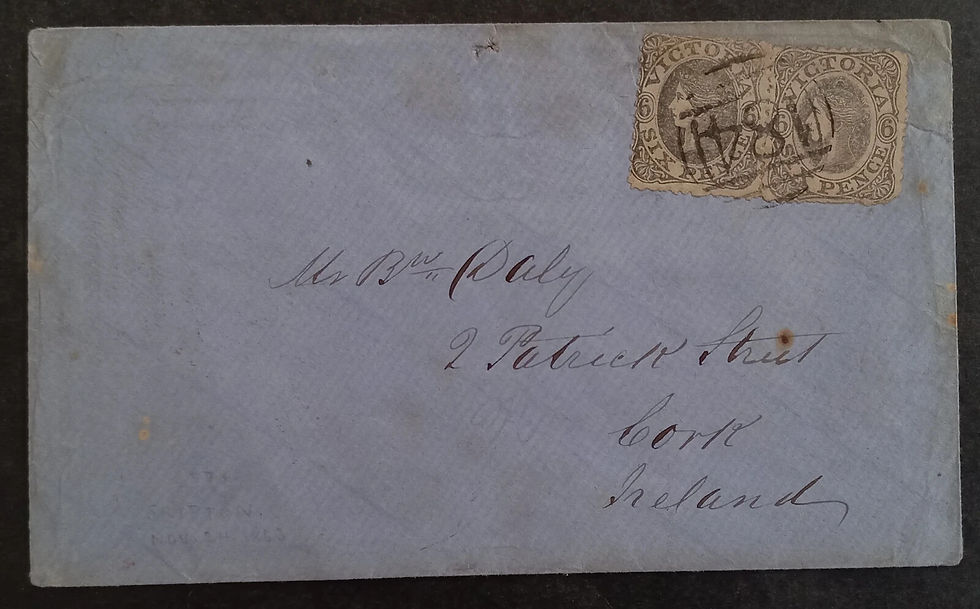 VICTORIA
6
SIX PENCE
VICTORIA
6 6
PENCE
Mr Bw Daly
2 Patrick Street
Cork
Ireland